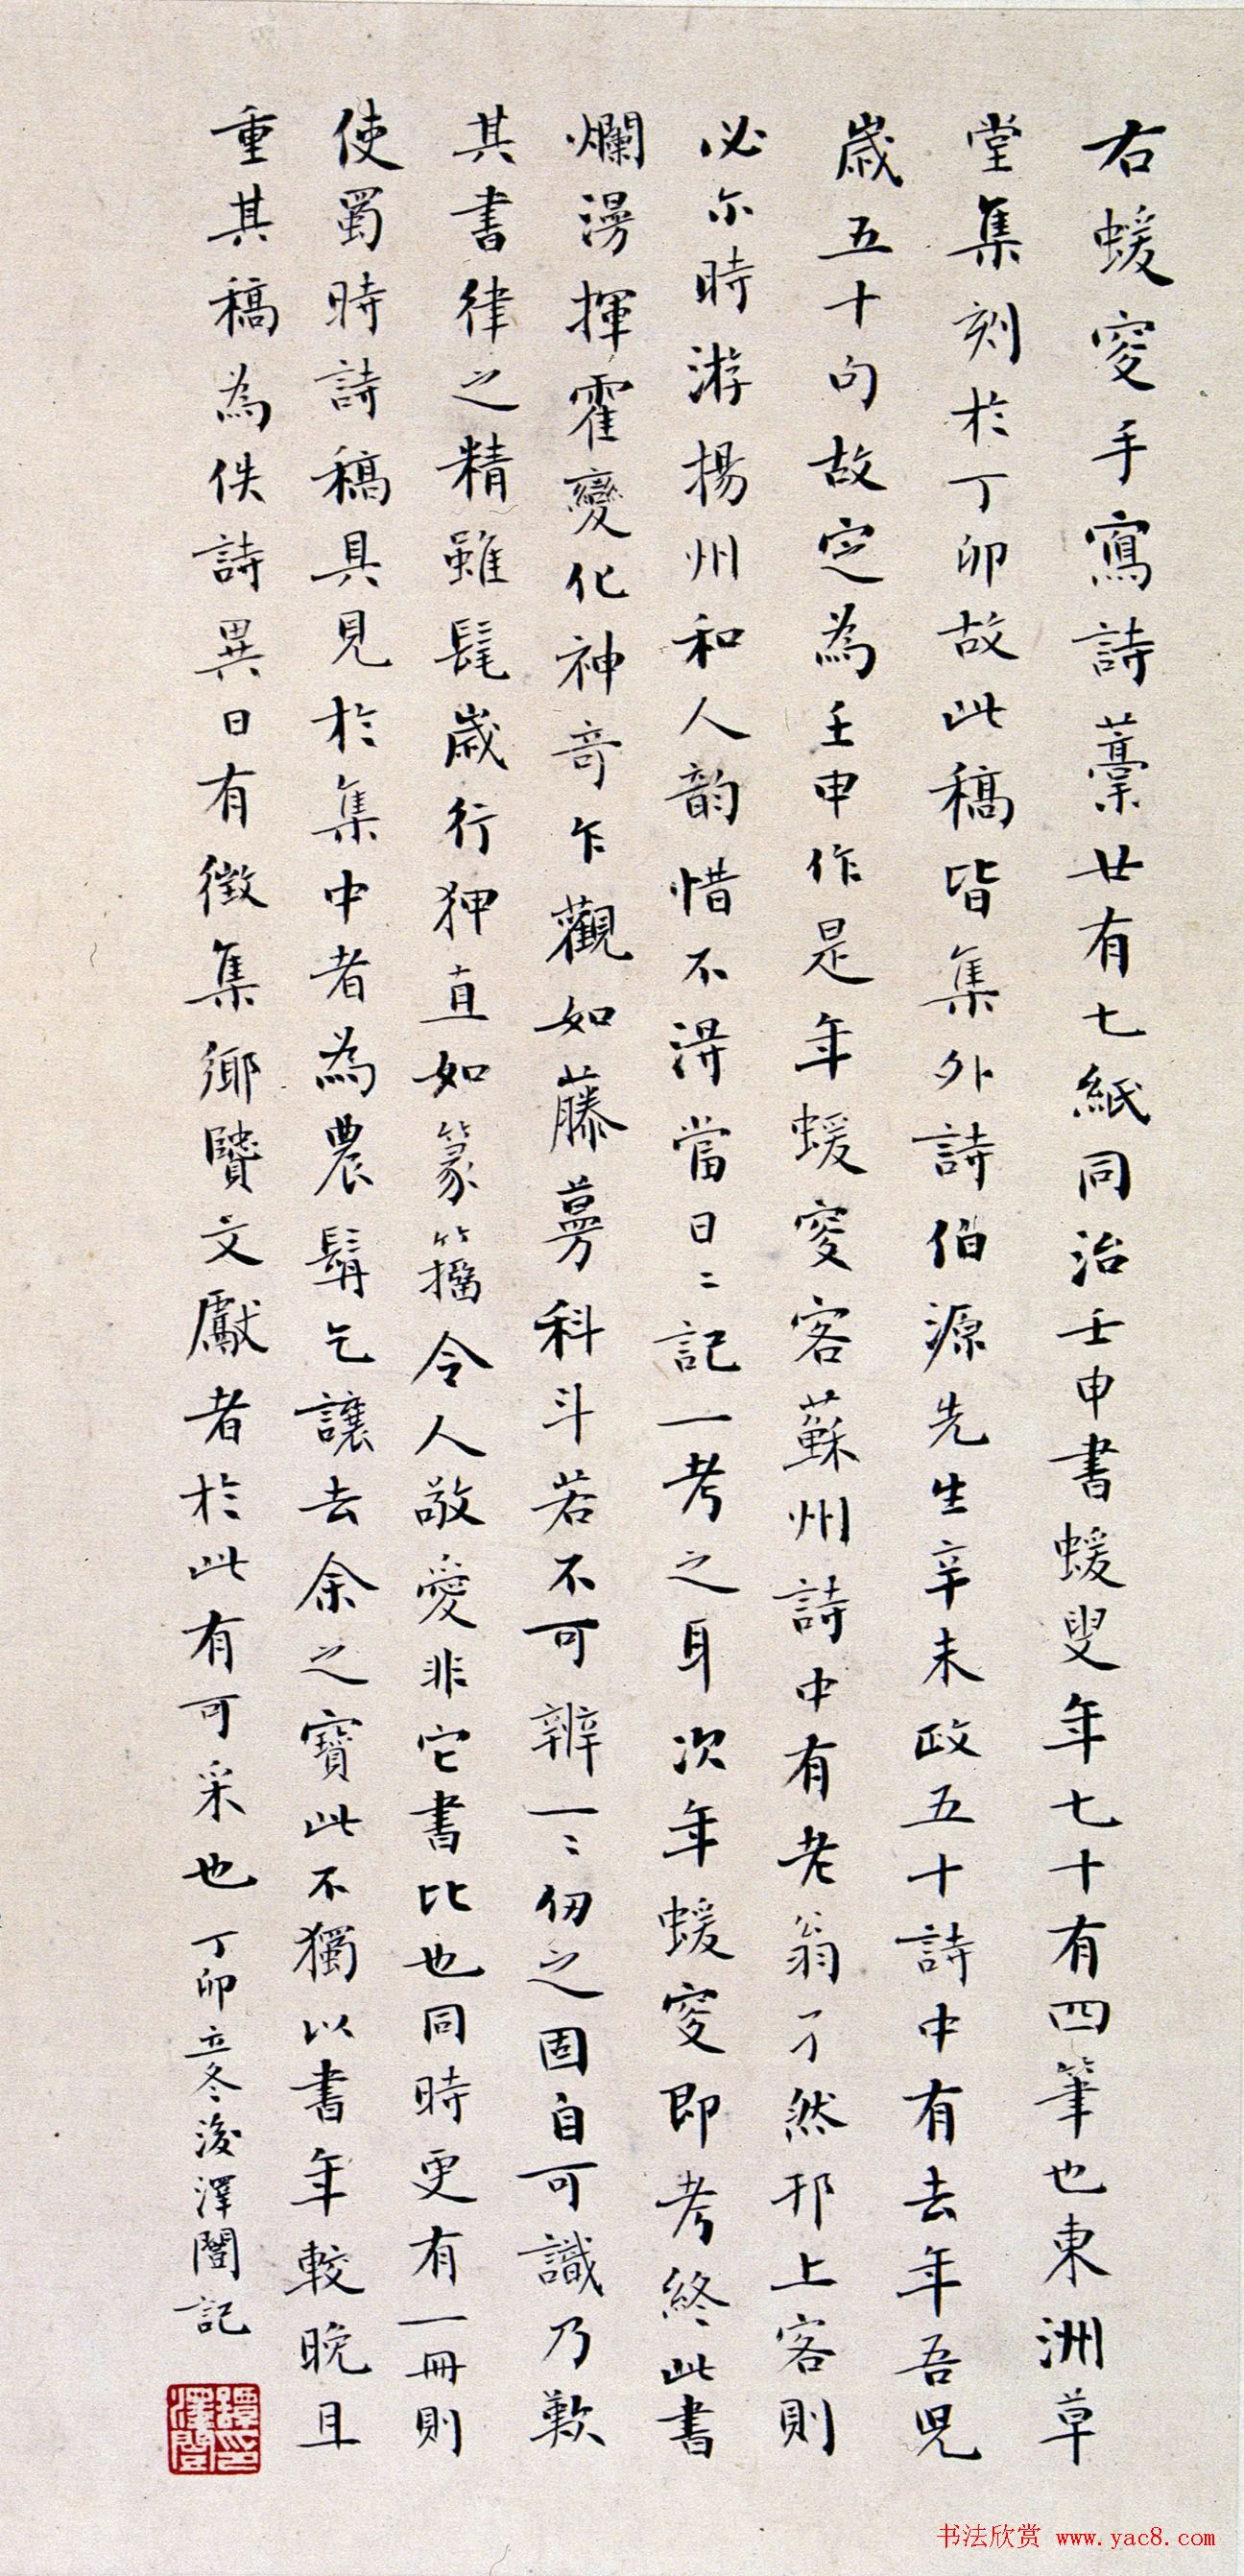 右蝯叟手寫詩藁廿有七紙同治壬申書蝯叟年七十有四筆也東洲草
堂集刻於丁卯故此稿皆集外詩伯源先生辛未政五十詩中有去年吾兒
歲五十句故定為壬申作是年蝯叟客蘇州詩中有老翁了然邗上客則
必尔時游揚州和人韵惜不淂當日〻記一考之耳次年蝯叟即考終此書
爛漫揮霍變化神奇乍觀如藤蔓科斗若不可辨一〻仞之固自可識乃歎
其書律之精雖髦歲行狎直如篆籀令人敬愛非它書比也同時更有一冊則
使蜀時詩稿具見於集中者為農髯乞讓去余之寶此不獨以書年較晚且
重其稿為佚詩異日有徵集鄉賢文獻者於此有可采也 丁卯立冬後澤闓記
譚澤闓印
书法欣赏 www.yac8.com